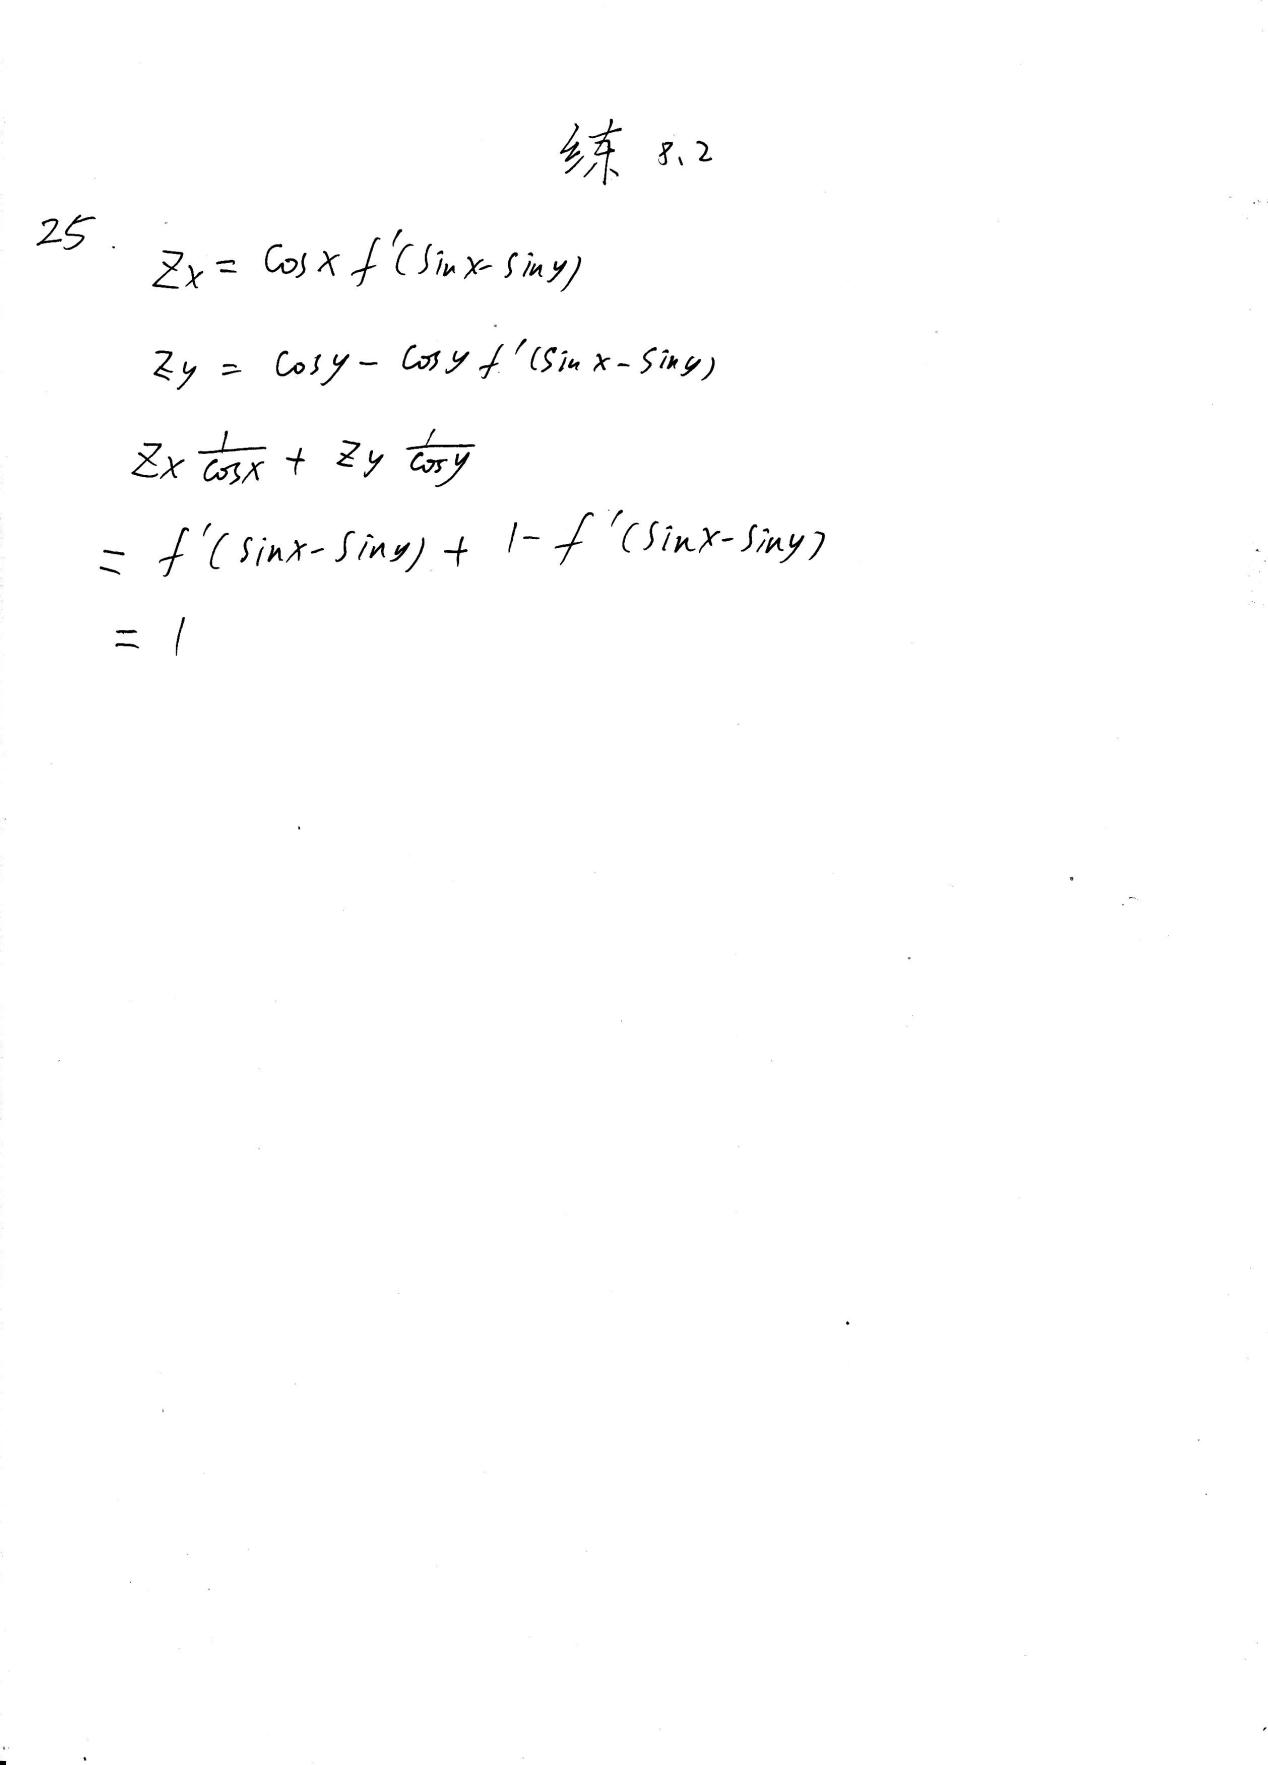 练 8.2
25.
Zx = Cosx f'(Sinx-Siny)
Zy = Cosy - Cosy f'(Sinx-Siny)
Zx 1/Cosx + Zy 1/Cosy
= f'(Sinx-Siny) + 1-f'(Sinx-Siny)
= 1